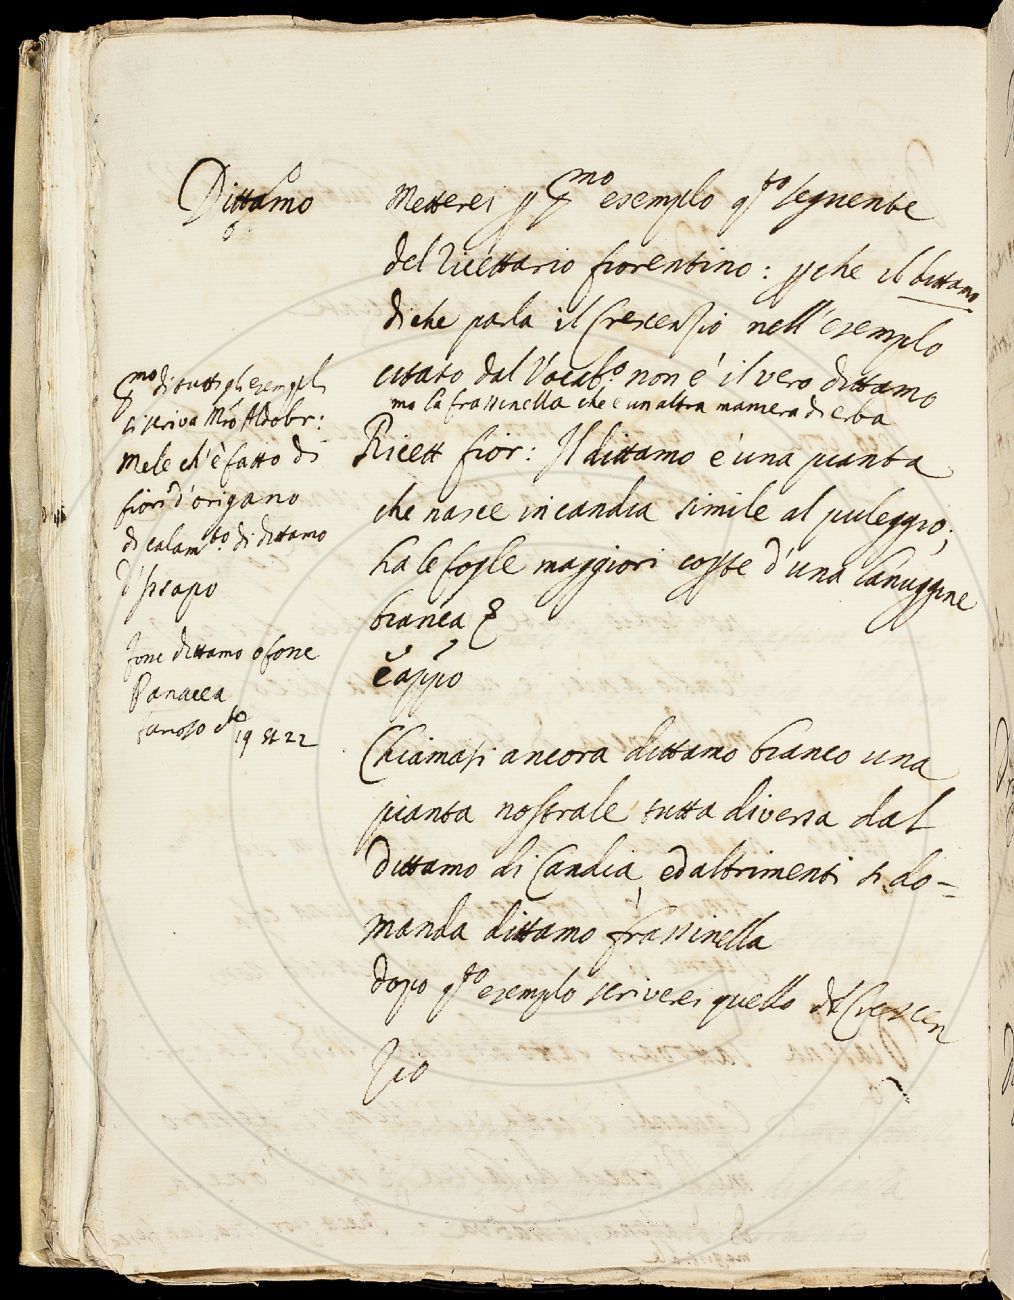 Dittamo
Metterei p p.mo esemplo q.to seguente
del Ricettario fiorentino: p che il dittamo
di che parla il Crescenzio nell'esemplo
citato dal Vocab.o non è il vero dittamo
mo la frassinella che è un altra maniera di erba
Ricett fior: Il dittamo è una pianta
che nasce in candia simile al puleggio;
ha le foglie maggiori coperte d'una lanuggine
bianca
e appo
Chiamasi ancora dittamo bianco una
pianta nostrale tutta diversa dal
Dittamo di Candia, ed altrimenti si do=
manda dittamo frassinella
dopo q.to esemplo scriverei quello del Crescen
zio
p.mo di tutti gli esempli
si scriva M.o Aldobr:
Mele ch'è fatto di
fiori d'origano
di calam.to di dittamo
d'Issapo
dittamo o fone
Panacea
furioso c.to 19 st 22